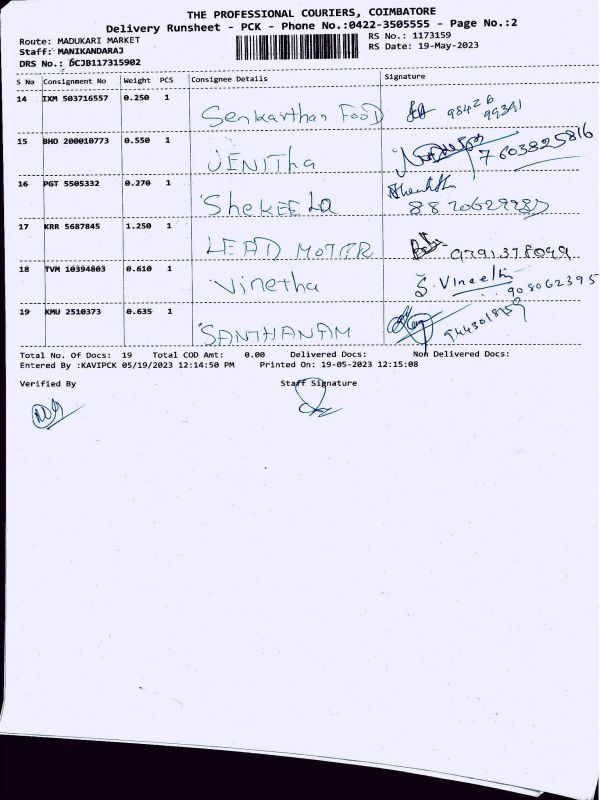 THE PROFESSIONAL COURIERS, COIMBATORE
Delivery Runsheet - PCK - Phone No.:0422-3505555 - Page No.:2
Route: MADUKARI MARKET
RS No.: 1173159
Staff: MANIKANDARAJ
RS Date: 19-May-2023
DRS No.: DCJB117315902
S No Consignment No Weight PCS Consignee Details Signature
14 IXM 503716557 0.250 1 Senkarthan FooD 98426
99391
15 BHO 200010773 0.550 1 JENITha 7603825816
16 PGT 5505332 0.270 1 ShekEE La
17 KRR 5687845 1.250 1 LEAD MOTER 9791378099
18 TVM 10394803 0.610 1 Vinetha 908062395
19 KMU 2510373 0.635 1 SANTHANAM
Total No. Of Docs: 19 Total COD Amt: 0.00 Delivered Docs: Non Delivered Docs:
Entered By :KAVIPCK 05/19/2023 12:14:50 PM Printed On: 19-05-2023 12:15:08
Verified By Staff Signature